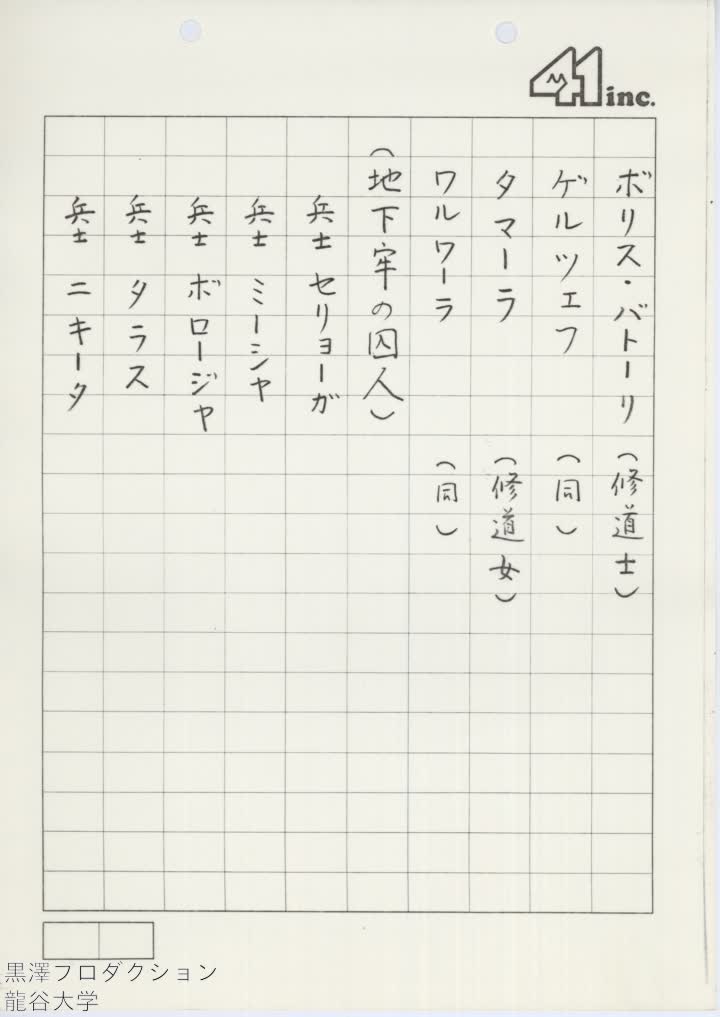 41 inc.
ボリス・バトーリ (修道士)
ゲルツェフ (同)
タマーラ (修道女)
ワルワーラ (同)
(地下牢の囚人)
兵士 セリョーガ
兵士 ミーシャ
兵士 ボロージャ
兵士 タラス
兵士 ニキータ
黒澤プロダクション
龍谷大学